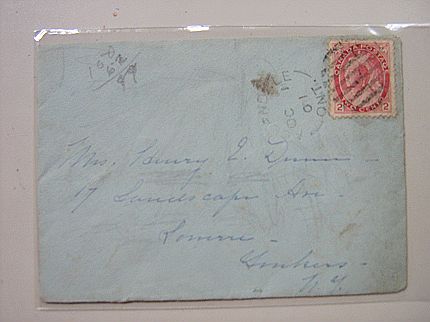 CANADA POSTAGE
2 CENTS 2
OC 1
01
ONT.
Mrs. Henry E. Dunn
17 Landscape Av.
Lowerre
Yonkers
N.Y.